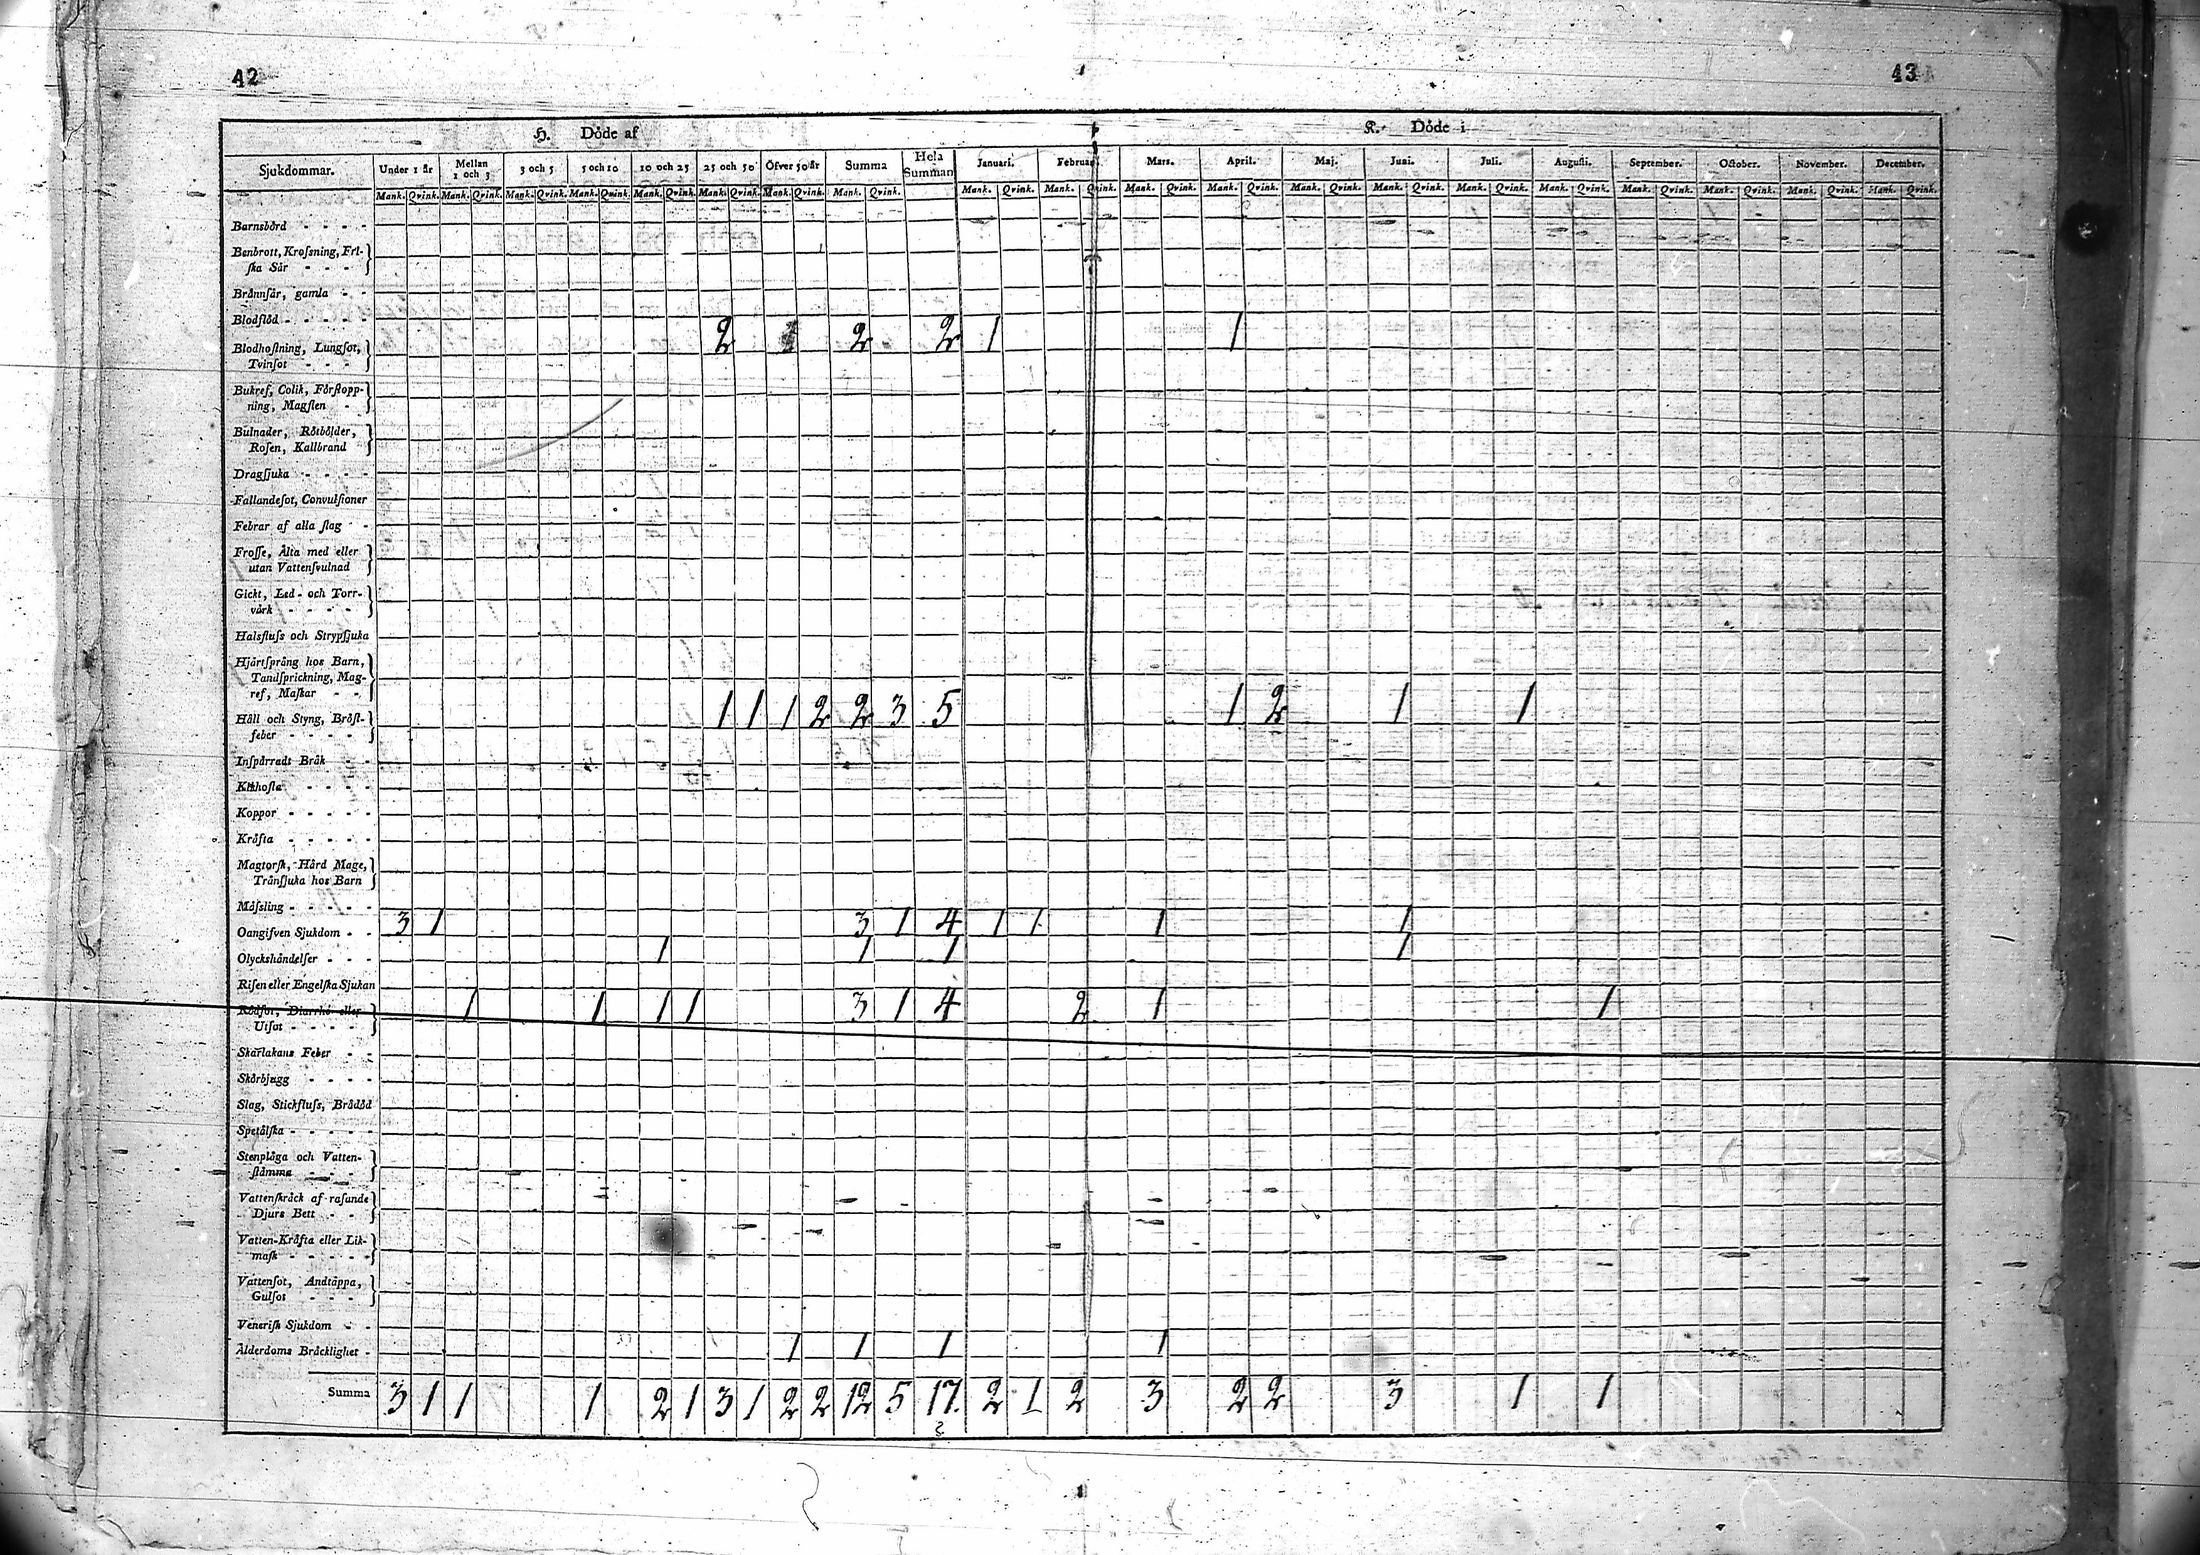 42 43
H. Döde af K. Döde i
Sjukdommar. Under 1 år Mellan 1 och 3 3 och 5 5 och 10 10 och 25 25 och 50 Öfver 50 år Summa Hela Summan Januari. Februar. Mars. April. Maj. Juni. Juli. Augusti. September. October. November. December.
Mank. Qvink. Mank. Qvink. Mank. Qvink. Mank. Qvink. Mank. Qvink. Mank. Qvink. Mank. Qvink. Mank. Qvink. Mank. Qvink. Mank. Qvink. Mank. Qvink. Mank. Qvink. Mank. Qvink. Mank. Qvink. Mank. Qvink. Mank. Qvink. Mank. Qvink. Mank. Qvink. Mank. Qvink. Mank. Qvink.
Barnsbörd - - - -
Benbrott, Krosſning, Fri-
ſka Sår - - -
Brännſår, gamla - -
Blodflöd - - - - -
Blodhoſtning, Lungſot, 2 2 2 1 1
Tvinſot - - -
Bukref, Colik, Förſtopp-
ning, Magſten -
Bulnader, Rötbölder,
Roſen, Kallbrand
Dragſjuka - - - -
Fallandeſot, Convulſioner
Febrar af alla ſlag -
Froſſe, Älta med eller
utan Vattenſvulnad
Gickt, Led- och Torr-
värk - - - -
Halsfluſs och Strypſjuka
Hjärtſprång hos Barn,
Tandſprickning, Mag-
ref, Maſkar - -
Håll och Styng, Bröſt- 1 1 1 2 2 3 5 1 2 1 1
feber - - - -
Inſpärradt Bråk -
Kikhoſta - - - -
Koppor - - - - -
Kräfta - - - - -
Magtorſk, Hård Mage,
Tränſjuka hos Barn
Måſsling - - - - -
Oangifven Sjukdom - - 3 1 3 1 4 1 1 1 1
Olyckshändelſer - - - 1 1 1 1
Riſen eller Engelſka Sjukan
Rödſot, Diarrhé eller 1 1 1 1 3 1 4 2 1 1
Utſot - - - -
Skarlakans Feber - -
Skörbjugg - - - -
Slag, Stickfluſs, Brådöd
Spetälſka - - - - -
Stenplåga och Vatten-
ſtämma - - -
Vattenſkräck af raſande
Djurs Bett - -
Vatten-Kräfta eller Lik-
maſk - - - - -
Vattenſot, Andtäppa,
Gulſot - - -
Veneriſk Sjukdom - -
Ålderdoms Bräcklighet - 1 1 1 1
Summa 3 1 1 1 2 1 3 1 2 2 12 5 17. 2 1 2 3 2 2 3 1 1